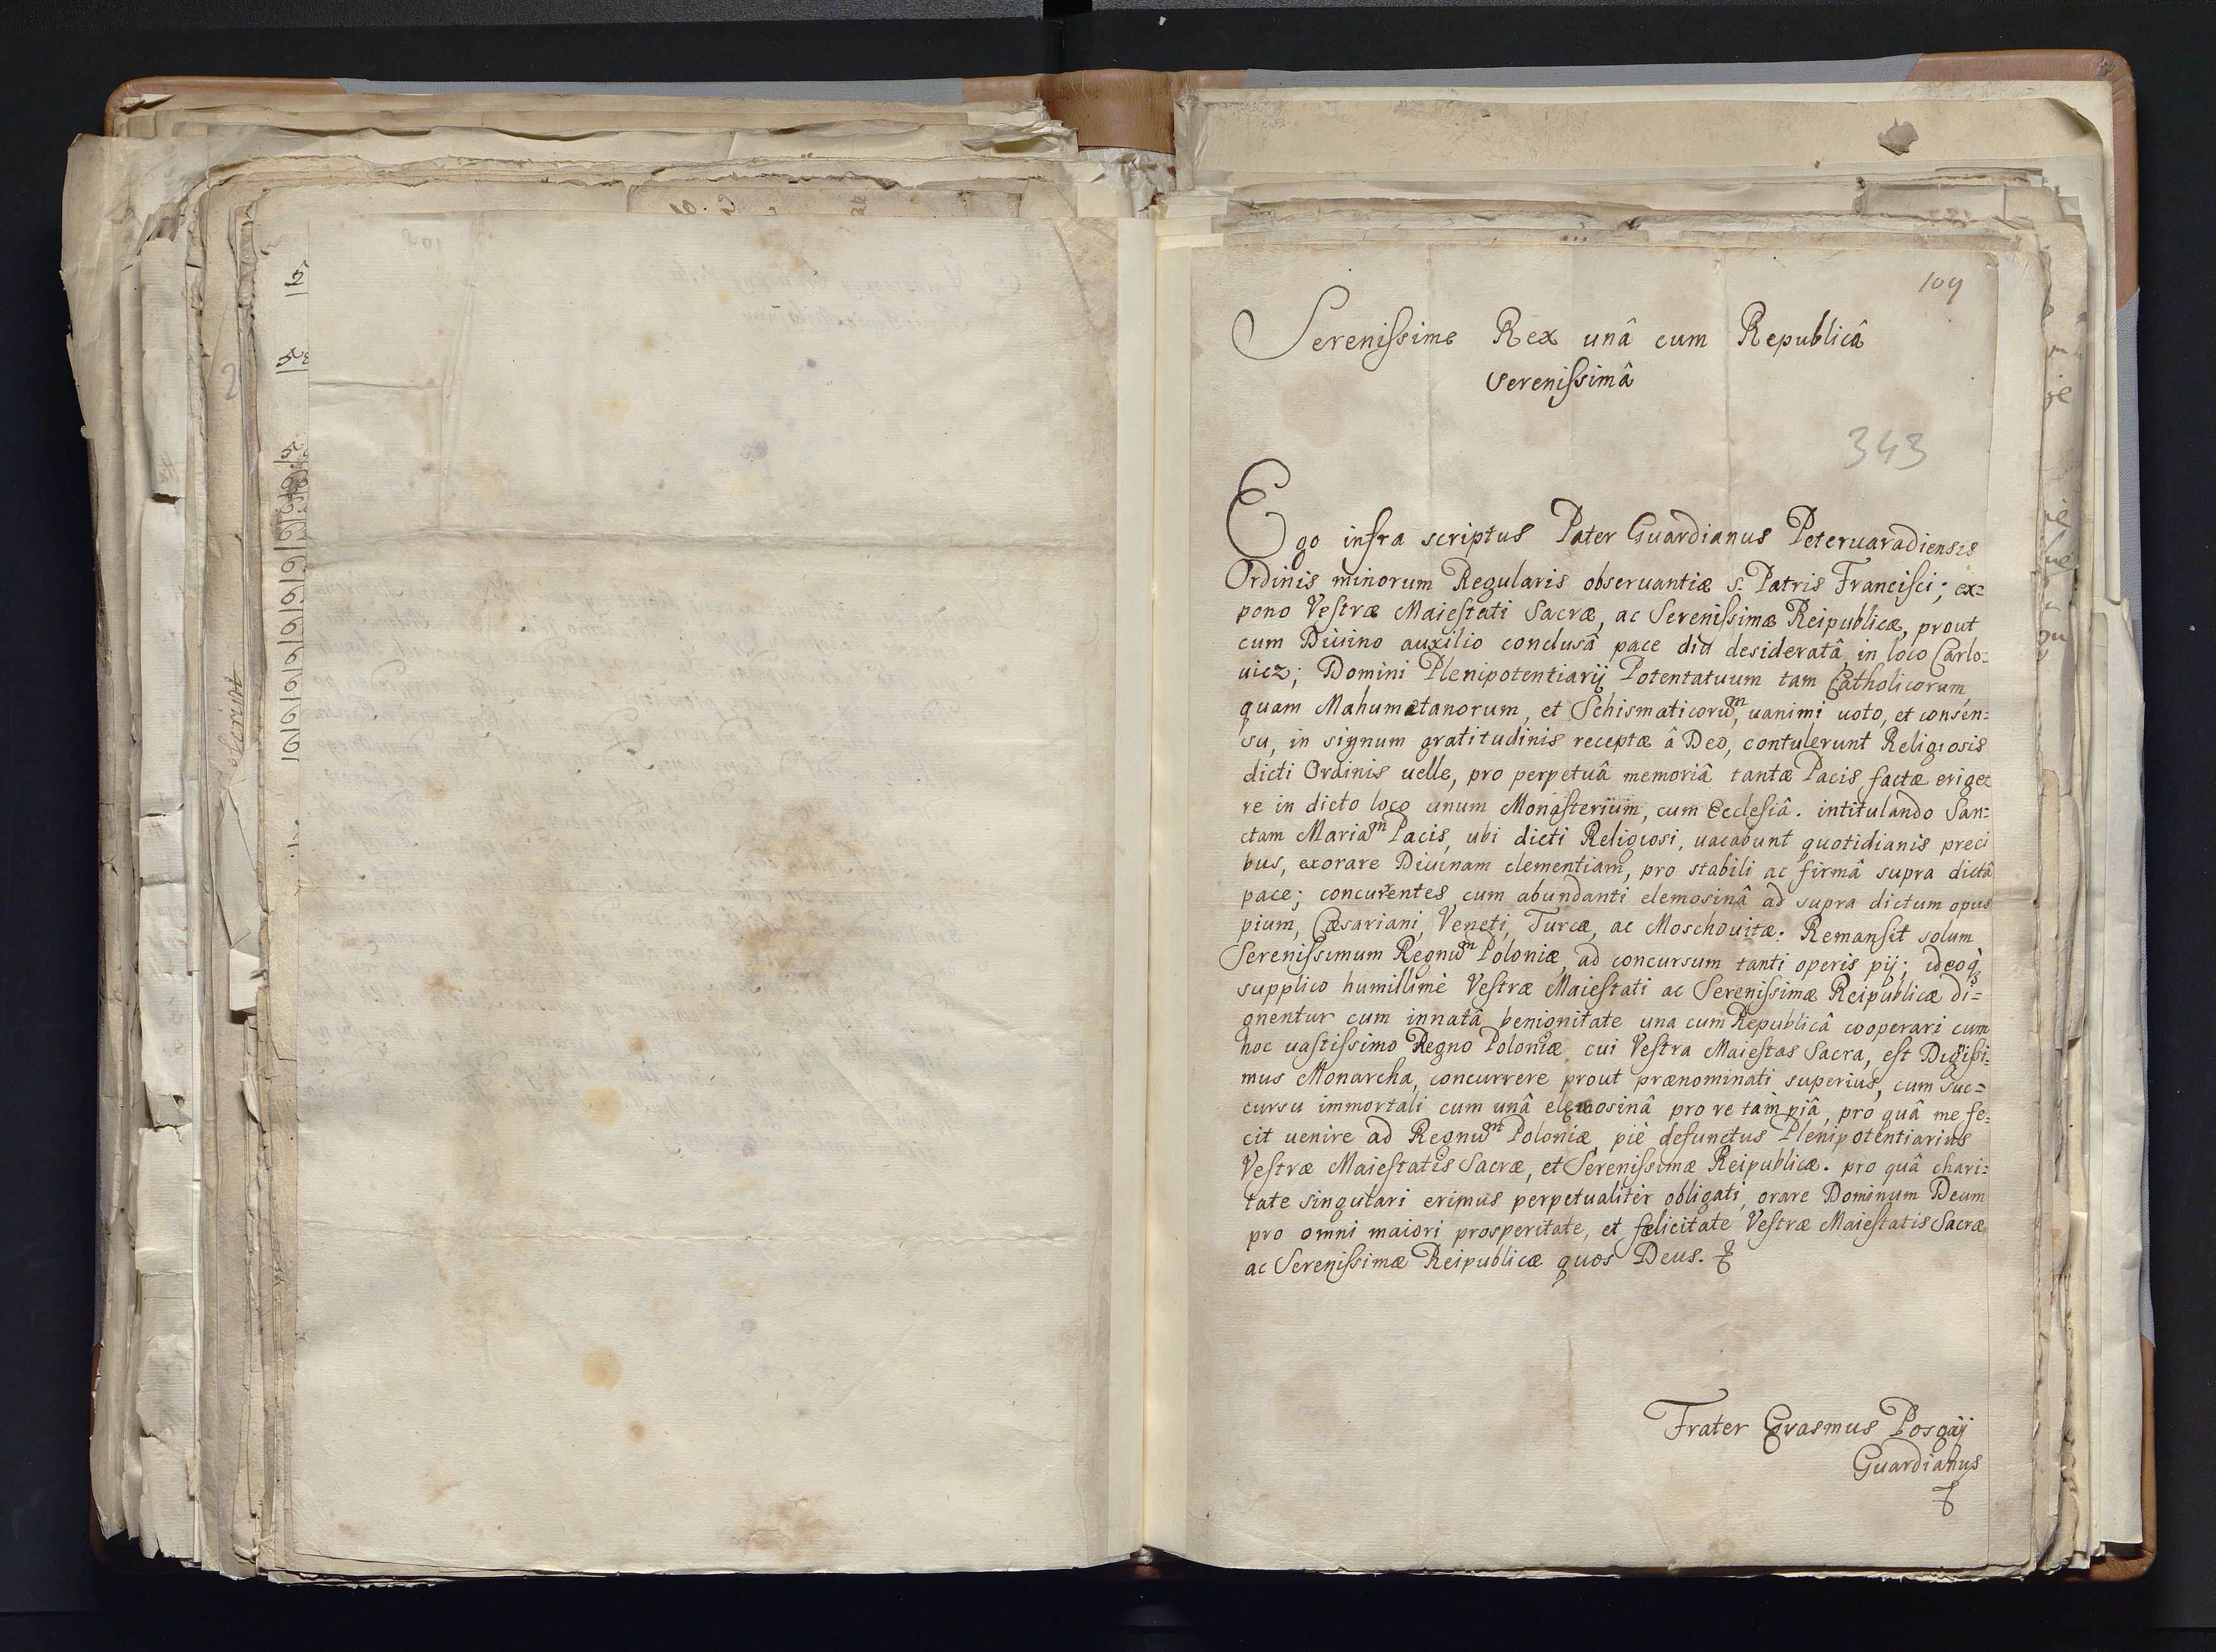 109
Serenissime Rex unâ cum Republicâ
serenissimâ
343
Ego infra scriptus Pater Guardianus Peteruaradiensis
Ordinis minorum Regularis obseruantiæ s. Patris Francisci; ex=
pono Vestræ Maiestati Sacræ, ac Serenissimæ Reipublicæ, prout
cum Diuino auxilio conclusâ pace diu desideratâ, in loco Carlo=
uicz; Domini Plenipotentiarij Potentatuum tam Catholicorum,
quam Mahumetanorum, et Schismaticorum, uanimi uoto, et consen=
su, in signum gratitudinis receptæ â Deo, contulerunt Religiosis
dicti Ordinis uelle, pro perpetuâ memoriâ tantæ Pacis factæ erige=
re in dicto loco unum Monasterium, cum Ecclesiâ. intitulando San=
ctam Mariam Pacis, ubi dicti Religiosi, uacabunt quotidianis preci
bus, exorare Diuinam clementiam, pro stabili ac firmâ supra dictâ
pace; concurentes cum abundanti elemosinâ ad supra dictum opus
pium, Cæsariani, Veneti, Turcæ, ac Moschouitæ: Remansit solum
Serenissimum Regnum Poloniæ, ad concursum tanti operis pij; ideoq
supplico humillimè Vestræ Maiestati ac Serenissimæ Reipublicæ di=
gnentur cum innatâ benignitate una cum Republicâ cooperari cum
hoc uastissimo Regno Poloniæ, cui Vestra Maiestas Sacra, est Digissi=
mus Monarcha, concurrere prout prænominati superius, cum suc=
cursu immortali cum unâ elemosinâ pro re tam piâ, pro quâ me fe=
cit uenire ad Regnum Poloniæ, piè defunctus Plenipotentiarius
Vestræ Maiestatis Sacræ, et Serenissimæ Reipublicæ. pro quâ chari=
tate singulari erimus perpetualiter obligati, orare Dominum Deum
pro omni maiori prosperitate, et fælicitate Vestræ Maiestatis Sacræ
ac Serenissimæ Reipublicæ quos Deus.
Frater Erasmus Posgaij
Guardianus